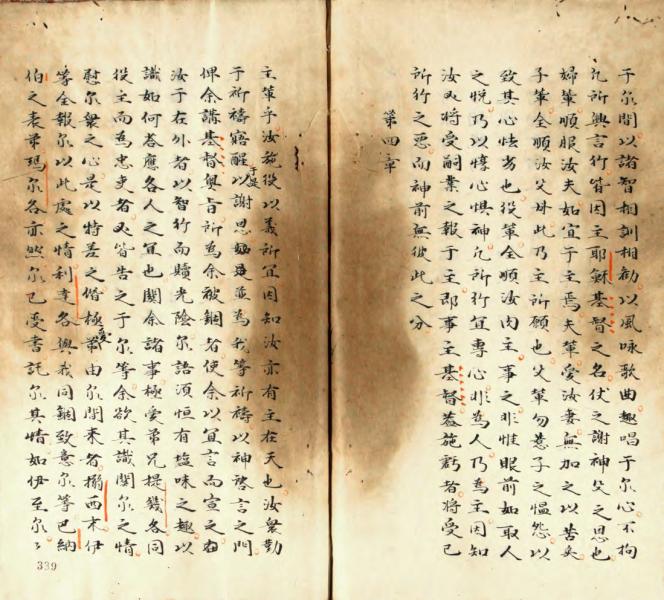 于尔間以諸智相訓相勸以風咏歌曲趣唱于尔心不拘
凢所興言行皆因主耶穌基督之名伏之謝神父之恩也
婦軰順服汝夫如宜于主焉夫軰愛汝妻無加之以苦矣
子軰全順汝父母此乃主所願也父軰勿惹子之愠怨以
致其心怯劣也役軰全順汝肉主事之非惟眼前如取人
之悅乃以惇心惧神凢所行宜專心非為人乃為主因知
汝必將受嗣業之報于主即事主基督葢施虧者將受已
所行之惡而神前無彼此之分
第四章
主軰乎汝施役以義所宜因知汝亦有主在天也汝衆勤
于祈禱寤醒于是以謝恩並為我等祈禱以神啓言之門
俾余講基督奧旨所為余被錮者使余以宜言而宣之
汝于在外者以智行而贖光陰尔語須恒有塩味之趣以
識如何荅應各人之宜也關余諸事極愛弟兄提幾各同
役主而為忠吏者必皆告之于尔等余欲其識關尔之情
慰尔衆之心是以特差之偕極愛弟由尔間来者搦西末伊
等全報尔以此處之情利達各與我同錮致意尔等巴納
伯之表弟瑪尔各亦然尔已受書託尔其情如伊至尔
339